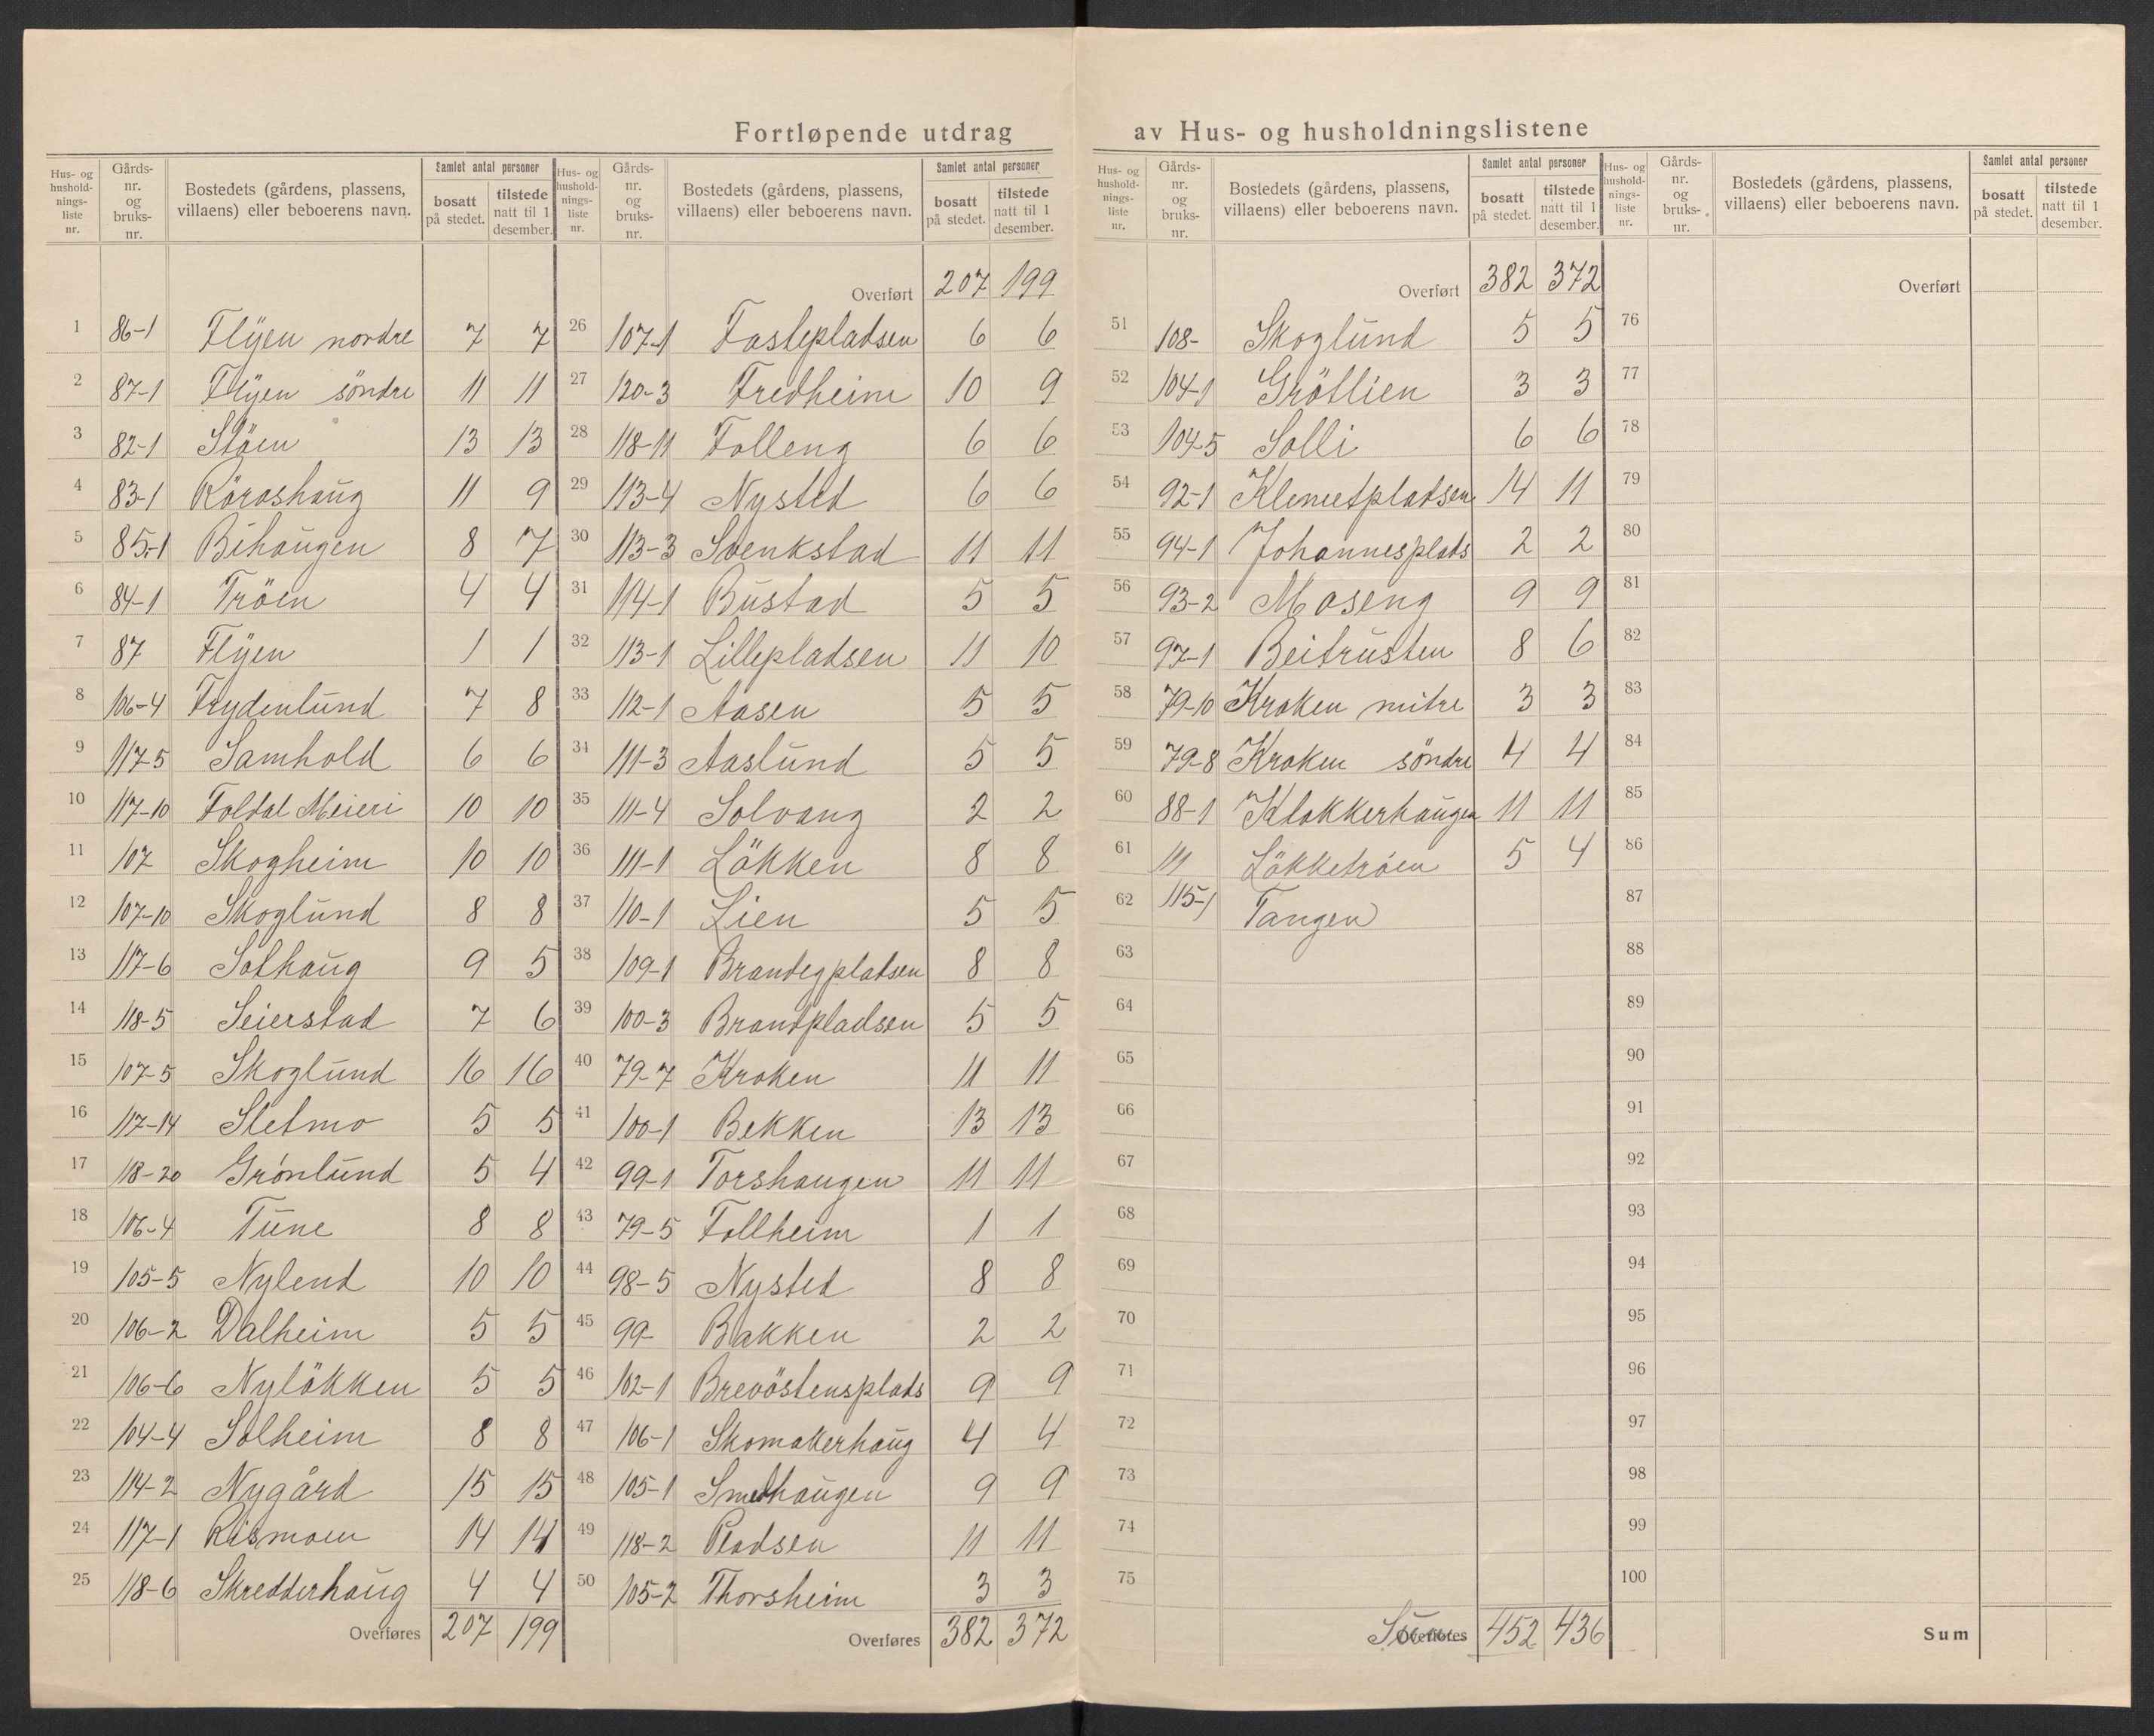 Fortløpende utdrag av Hus- og husholdningslistene
Hus- og hushold-nings-liste nr. Gårds-nr. og bruks-nr. Bostedets (gårdens, plassens, villaens) eller beboerens navn. Samlet antal personer bosatt på stedet. tilstede natt til 1 desember.
1 86-1 Flÿen nordre 7 7
2 87-1 Flÿen söndre 11 11
3 82-1 Stöen 13 13
4 83-1 Röroshaug 11 9
5 85-1 Bihaugen 8 7
6 84-1 Tröen 4 4
7 87 Flÿen 1 1
8 106-4 Frydenlund 7 8
9 117-5 Samhold 6 6
10 117-10 Foldal Meieri 10 10
11 107 Skogheim 10 10
12 107-10 Skoglund 8 8
13 117-6 Solhaug 9 5
14 118-5 Seierstad 7 6
15 107-5 Skoglund 16 16
16 117-14 Sletmo 5 5
17 118-20 Grönlund 5 4
18 106-4 Tune 8 8
19 105-5 Nylend 10 10
20 106-2 Dalheim 5 5
21 106-6 Nylökken 5 5
22 104-4 Solheim 8 8
23 114-2 Nygård 15 15
24 117-1 Rismoen 14 14
25 118-6 Skredderhaug 4 4
Overføres 207 199
Hus- og hushold-nings-liste nr. Gårds-nr. og bruks-nr. Bostedets (gårdens, plassens, villaens) eller beboerens navn. Samlet antal personer bosatt på stedet. tilstede natt til 1 desember.
Overført 207 199
26 107-1 6 6
27 120-3 Fredheim 10 9
28 118-11 Folleng 6 6
29 113-4 Nysted 6 6
30 113-3 Svenkstad 11 11
31 114-1 Bustad 5 5
32 113-1 Lillepladsen 11 10
33 112-1 Aasen 5 5
34 111-3 Aaslund 5 5
35 111-4 Solvang 2 2
36 111-1 Lökken 8 8
37 110-1 Lien 5 5
38 109-1 Brandegpladsen 8 8
39 100-3 Brandpladsen 5 5
40 79-7 Kroken 11 11
41 100-1 Bekken 13 13
42 99-1 Torshaugen 11 11
43 79-5 Follheim 1 1
44 98-5 Nysted 8 8
45 99- Bakken 2 2
46 102-1 Brevöstensplads 9 9
47 106-1 Skomakerhaug 4 4
48 105-1 Smedhaugen 9 9
49 118-2 Pladsen 11 11
50 105-2 Thorsheim 3 3
Overføres 382 372
Hus- og hushold-nings-liste nr. Gårds-nr. og bruks-nr. Bostedets (gårdens, plassens, villaens) eller beboerens navn. Samlet antal personer bosatt på stedet. tilstede natt til 1 desember.
Overført 382 372
51 108- Skoglund 5 5
52 104-1 Grötlien 3 3
53 104-5 Solli 6 6
54 92-1 Klemetpladsen 14 11
55 94-1 Johannesplads 2 2
56 93-2 Moseng 9 9
57 97-1 Beitrusten 8 6
58 79-10 Kroken mitre 3 3
59 79-8 Kroken söndre 4 4
60 88-1 Klokkerhaugen 11 11
61 111 Lökketröen 5 4
62 115-1 Tangen
63
64
65
66
67
68
69
70
71
72
73
74
75
Sum Overføres 452 436
Hus- og hushold-nings-liste nr. Gårds-nr. og bruks-nr. Bostedets (gårdens, plassens, villaens) eller beboerens navn. Samlet antal personer bosatt på stedet. tilstede natt til 1 desember.
Overført
76
77
78
79
80
81
82
83
84
85
86
87
88
89
90
91
92
93
94
95
96
97
98
99
100
Sum